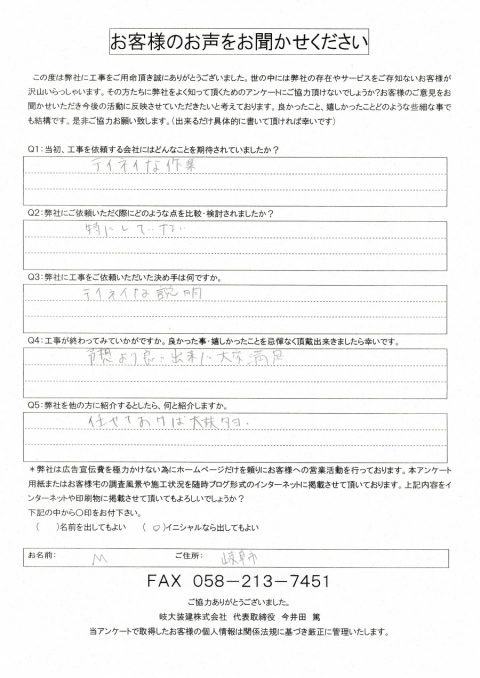 お客様のお声をお聞かせください
この度は弊社に工事をご用命頂き誠にありがとうございました。世の中には弊社の存在やサービスをご存知ないお客様が
沢山いらっしゃいます。その方たちに弊社をよく知って頂くためのアンケートにご協力頂けないでしょうか?お客様のご意見をお
聞かせいただき今後の活動に反映させていただきたいと考えております。良かったこと、嬉しかったことどのような些細な事で
も結構です。是非ご協力お願い致します。（出来るだけ具体的に書いて頂ければ幸いです）
Q1：当初、工事を依頼する会社にはどんなことを期待されていましたか?
テイネイな作業
Q2：弊社にご依頼いただく際にどのような点を比較・検討されましたか?
特にしていない
Q3：弊社に工事をご依頼いただいた決め手は何ですか。
テイネイな説明
Q4：工事が終わってみていかがですか。良かった事・嬉しかったことを忌憚なく頂戴出来ましたら幸いです。
予想より良い出来に大変満足
Q5：弊社を他の方に紹介するとしたら、何と紹介しますか。
任せておけば大丈夫
＊弊社は広告宣伝費を極力かけない為にホームページだけを頼りにお客様への営業活動を行っております。本アンケート
用紙またはお客様宅の調査風景や施工状況を随時ブログ形式のインターネットに掲載させて頂いております。上記内容をイ
ンターネットや印刷物に掲載させて頂いてもよろしいでしょうか?
下記の中から○印をお付下さい。
（　）名前を出してもよい　（○）イニシャルなら出してもよい
お名前： M ご住所： 岐阜市
FAX 058－213－7451
ご協力ありがとうございました。
岐大装建株式会社 代表取締役 今井田 篤
当アンケートで取得したお客様の個人情報は関係法規に基づき厳正に管理いたします。